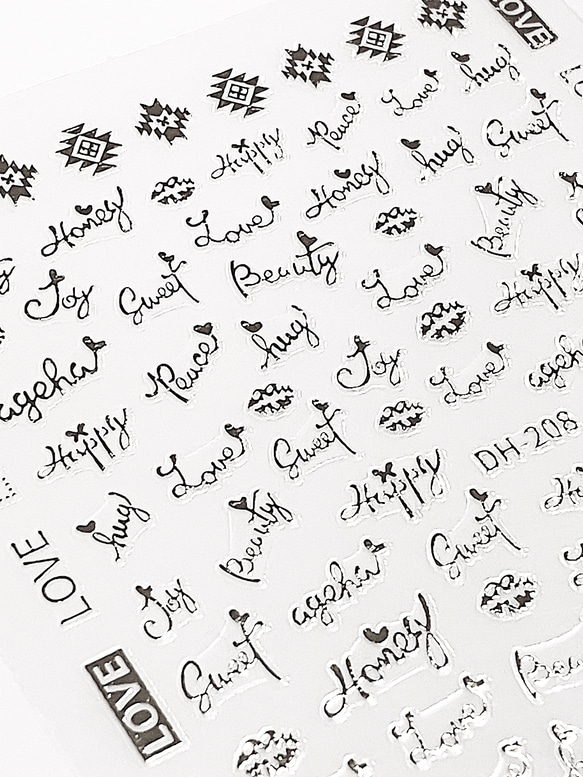 LOVE
hug
Love
Peace
Happy
Sweet
hug
Honey
Love
Honey
Beauty
Joy
Sweet
Beauty
Love
Happy
ageha
Peace
hug
Joy
Love
ageha
Happy
Love
Sweet
Happy
DH-208
hug
Beauty
Sweet
LOVE
Joy
ageha
Sweet
Honey
LOVE
Love